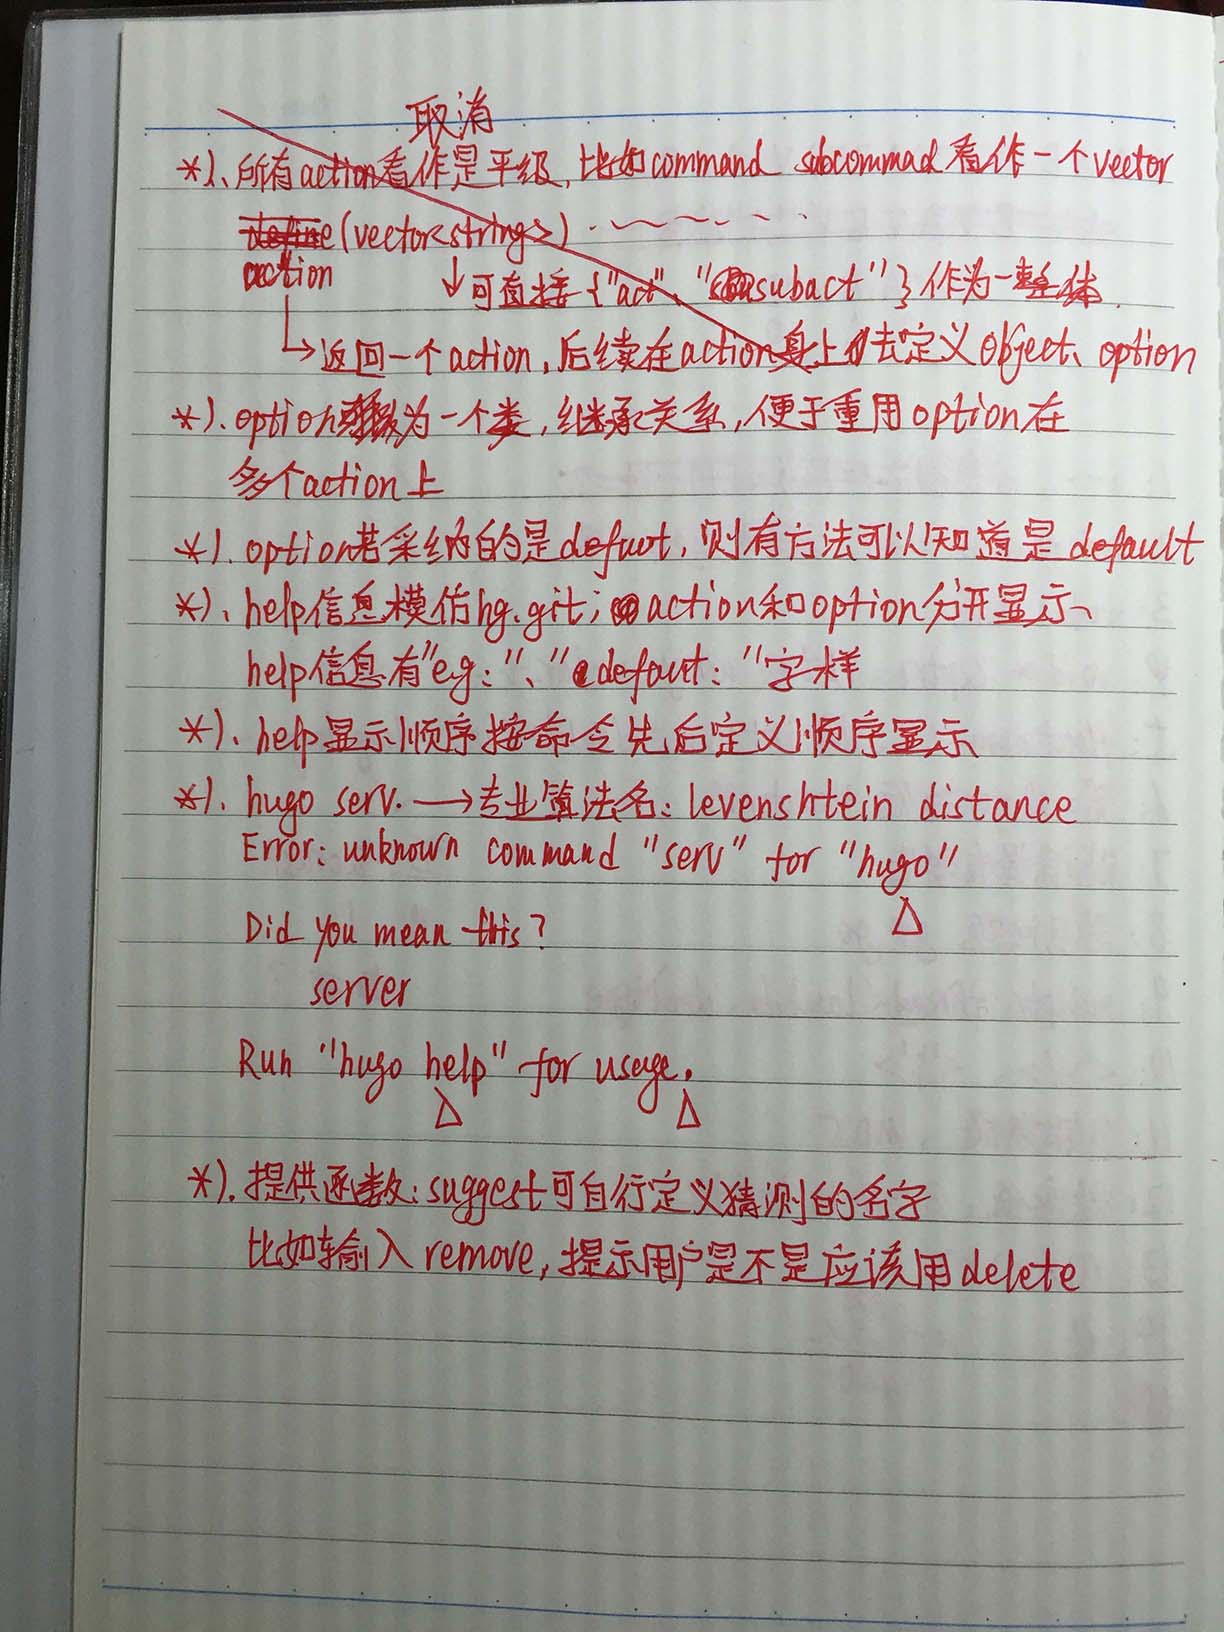 取消
*)、所有action看作是平级,比如command subcommad看作一个vector
define(vector<string>)
action
↓可直接{"act"、"subact"}作为一整体.
→返回一个action,后续在action身上去定义object、option
*).option为一个类,继承关系,便于重用option在
多个action上
*).option若采纳的是defaut,则有方法可以知道是default
*)、help信息模仿hg.git;action和option分开显示、
help信息有"eg:"、"defaut:"字样
*)、help显示顺序按命令先后定义顺序显示
*).hugo serv.→专业算法名:levenshtein distance
Error:unknown command "serv" for "hugo"
△
Did you mean this?
server
Run "hugo help" for usage.
△ △
*).提供函数:suggest可自行定义猜测的名字
比如输入remove,提示用户是不是应该用delete